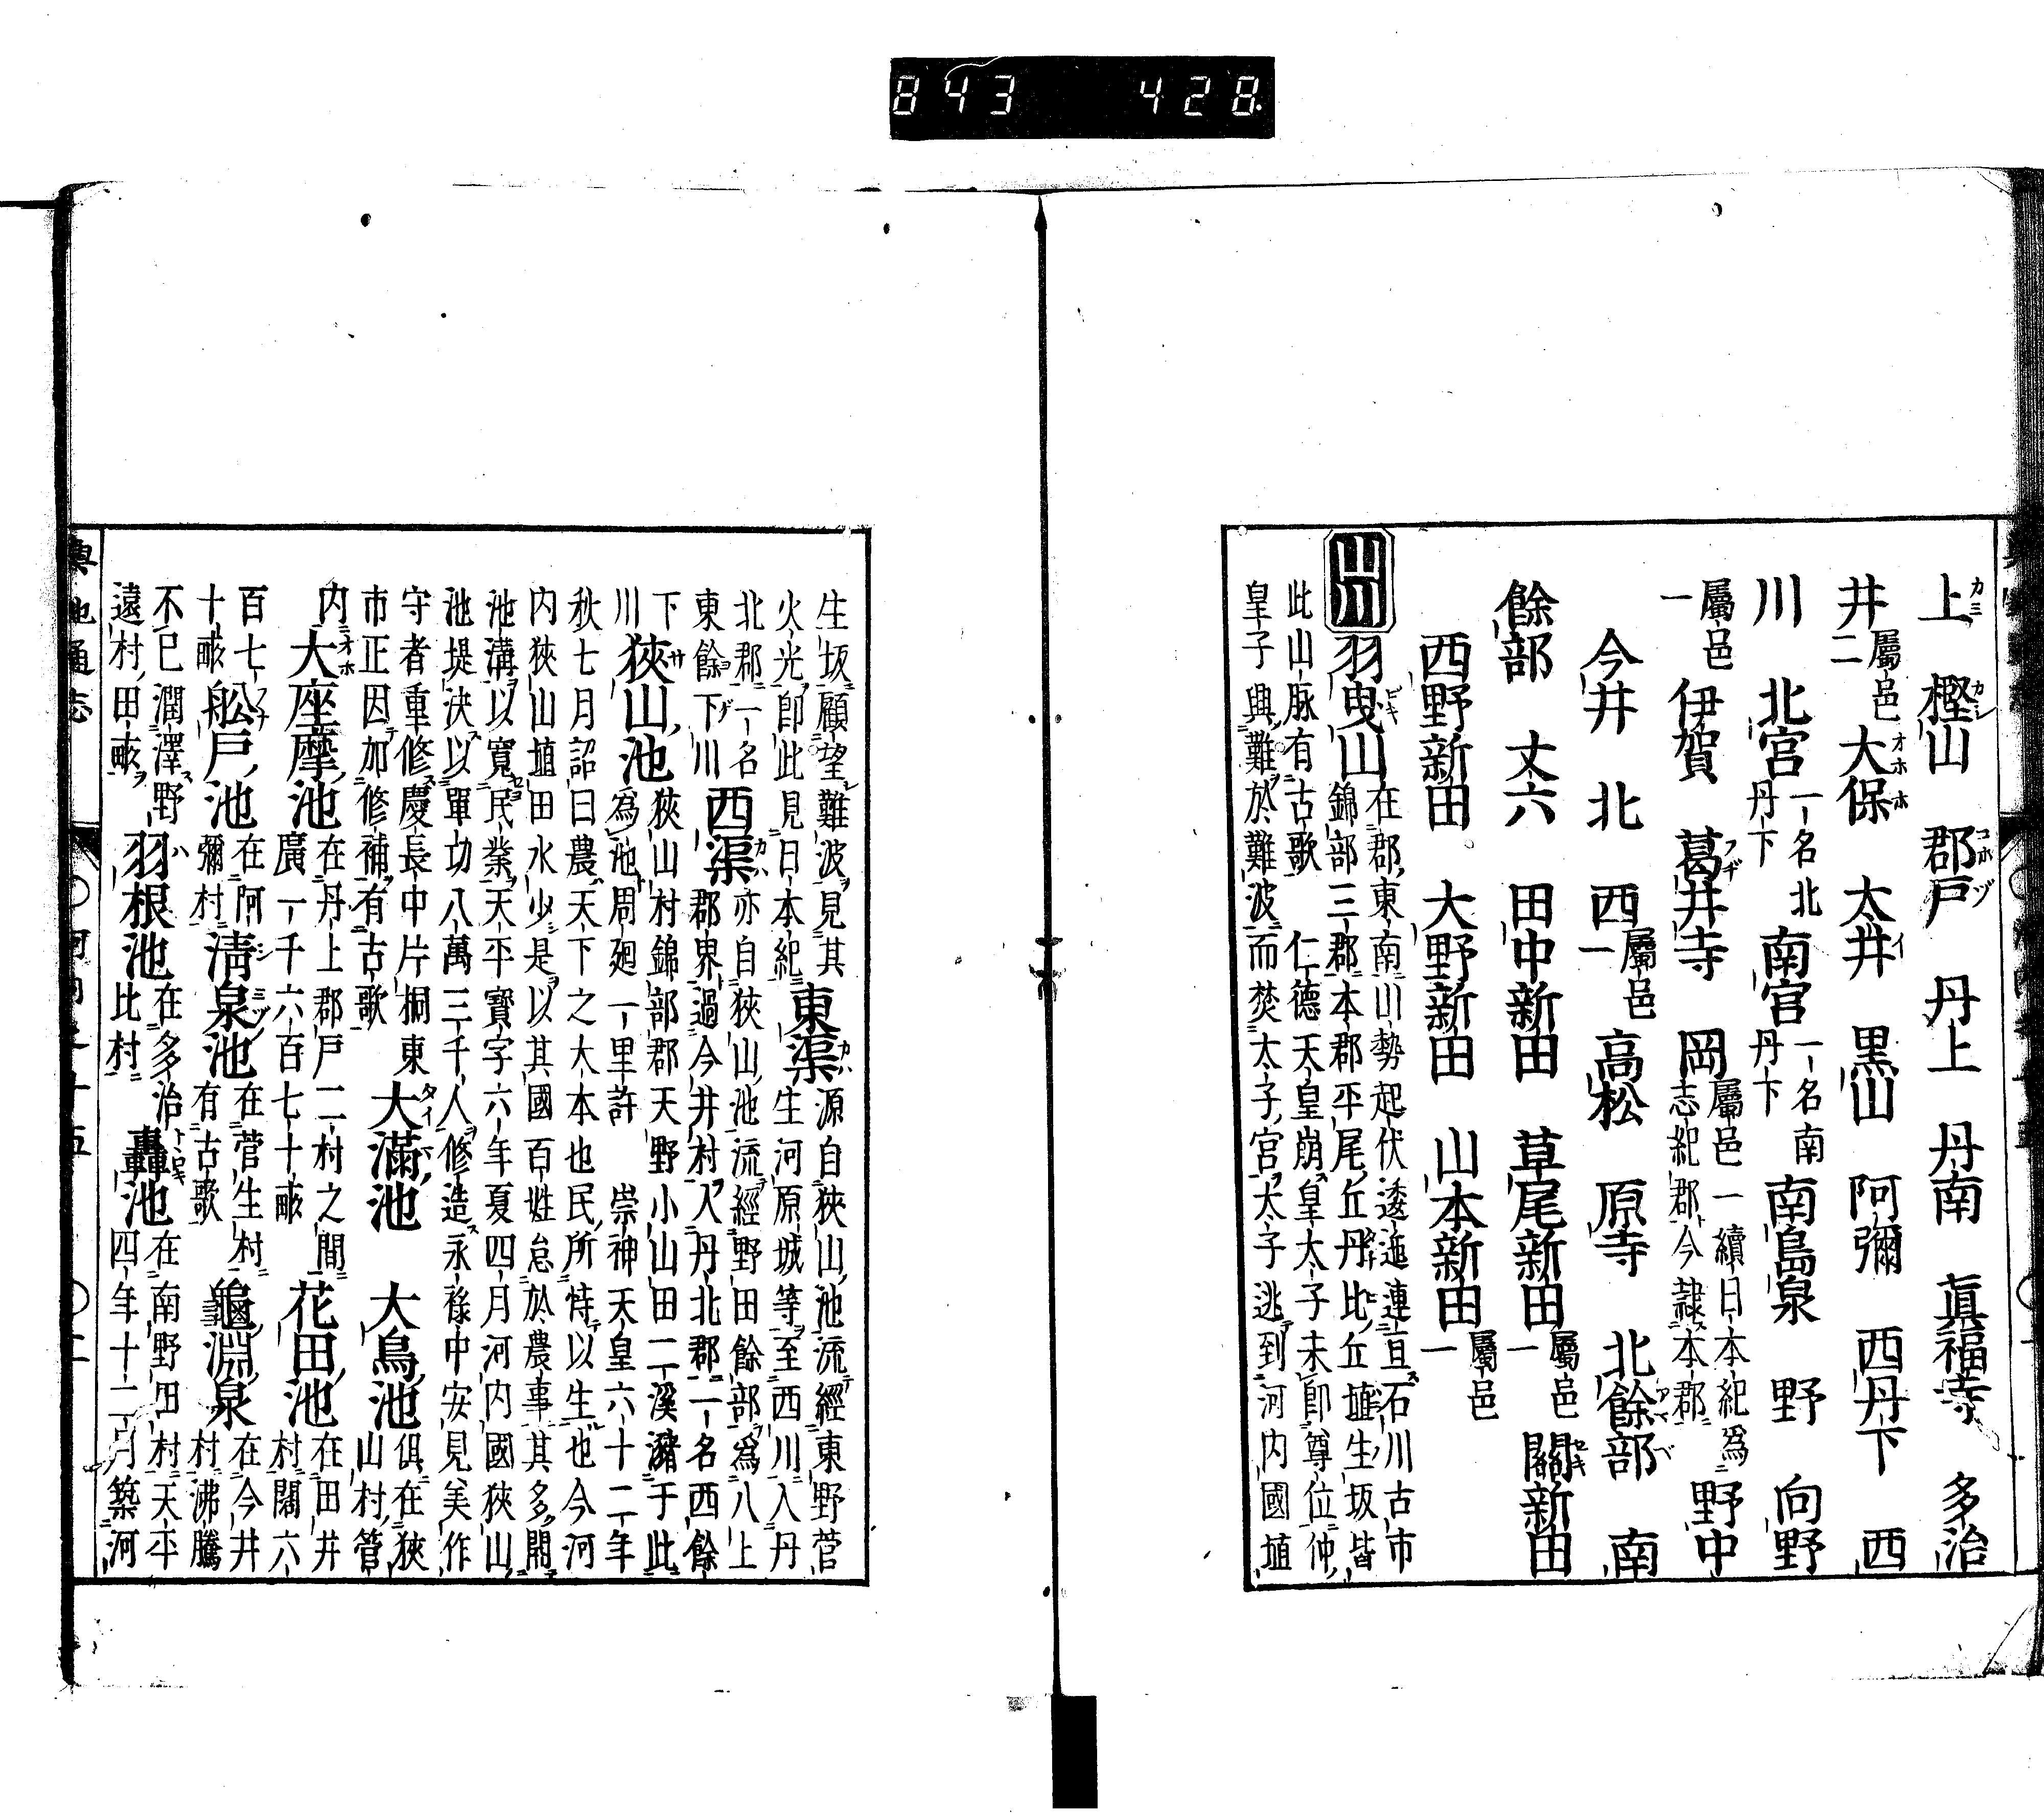 843 428
上 樫山 郡戸 丹上 丹南 眞福寺 多治
井 屬邑二 大保 太井 黒山 阿彌 西丹下 西
川 北宮 一名北丹下 南宮 一名南丹下 南島泉 野 向野
屬邑一 伊賀 葛井寺 岡 屬邑一續日本紀爲志紀郡今隷本郡 野中
今井 北 西 屬邑一 高松 原寺 北餘部 南
餘部 丈六 田中新田 草尾新田 屬邑一 關新田
西野新田 大野新田 山本新田 屬邑一
山川 羽曳山 在郡東南山勢起伏逶迤連亘石川古市
錦部三郡本郡平尾丘丹比丘埴生坂皆
此山脉有古歌 仁德天皇崩皇太子未即尊位仲
皇子興難於難波而焚太子宮太子逃到河内國埴
生坂顧望難波見其 東渠 源自狹山池流經東野菅
火光即此見日本紀 生河原城等至西川入丹
北郡一名 亦自狹山池流經野田餘部爲八上
東餘下川 西渠 郡界過今井村入丹北郡一名西餘
下 狹山村錦部郡天野小山田二溪瀦于此
川 狹山池 爲池周廻一里許 崇神天皇六十二年
秋七月詔曰農天下之大本也民所恃以生也今河
内狹山埴田水少是以其國百姓怠於農事其多開
池溝以寛民業天平寶字六年夏四月河内國狹山
池堤決以單功八萬三千人修造永祿中安見美作
守者重修慶長中片桐東 俱在狹
市正因加修補有古歌 大滿池 大鳥池 山村管
内 大座摩池 在丹上郡戸二村之間 花田池 在田井
廣一千六百七十畝 村闊六
百七 舩戸池 在阿 清泉池 在菅生村 龜淵泉 在今井
十畝 彌村 有古歌 村沸騰
不已潤澤野 羽根池 在多治 轟池 在南野田村天平
遠村田畝 比村 四年十二月築河